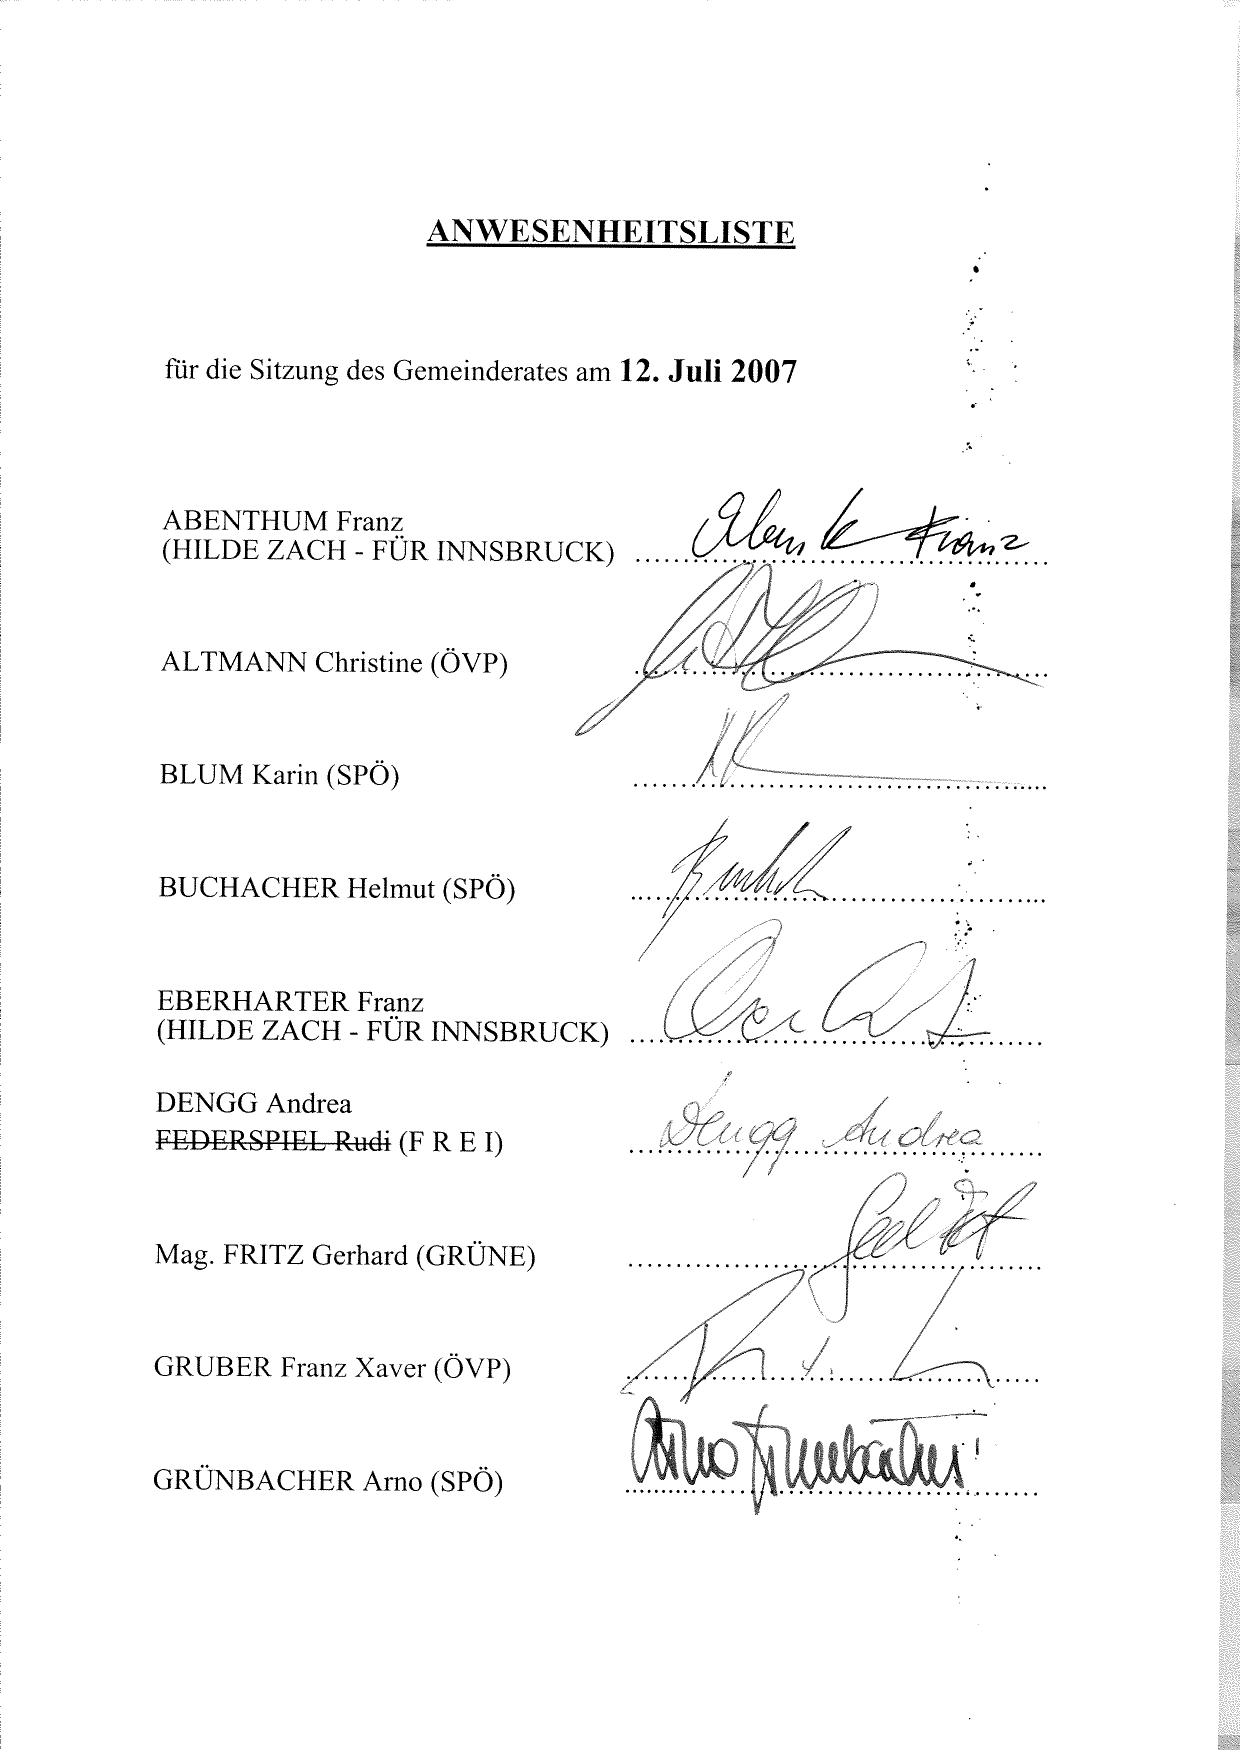 ANWESENHEITSLISTE
für die Sitzung des Gemeinderates am 12. Juli 2007
ABENTHUM Franz
(HILDE ZACH - FÜR INNSBRUCK) Franz
ALTMANN Christine (ÖVP)
BLUM Karin (SPÖ)
BUCHACHER Helmut (SPÖ)
EBERHARTER Franz
(HILDE ZACH - FÜR INNSBRUCK)
DENGG Andrea
FEDERSPIEL Rudi (F R E I) Dengg Andrea
Mag. FRITZ Gerhard (GRÜNE)
GRUBER Franz Xaver (ÖVP)
GRÜNBACHER Arno (SPÖ) Arno Grünbacher